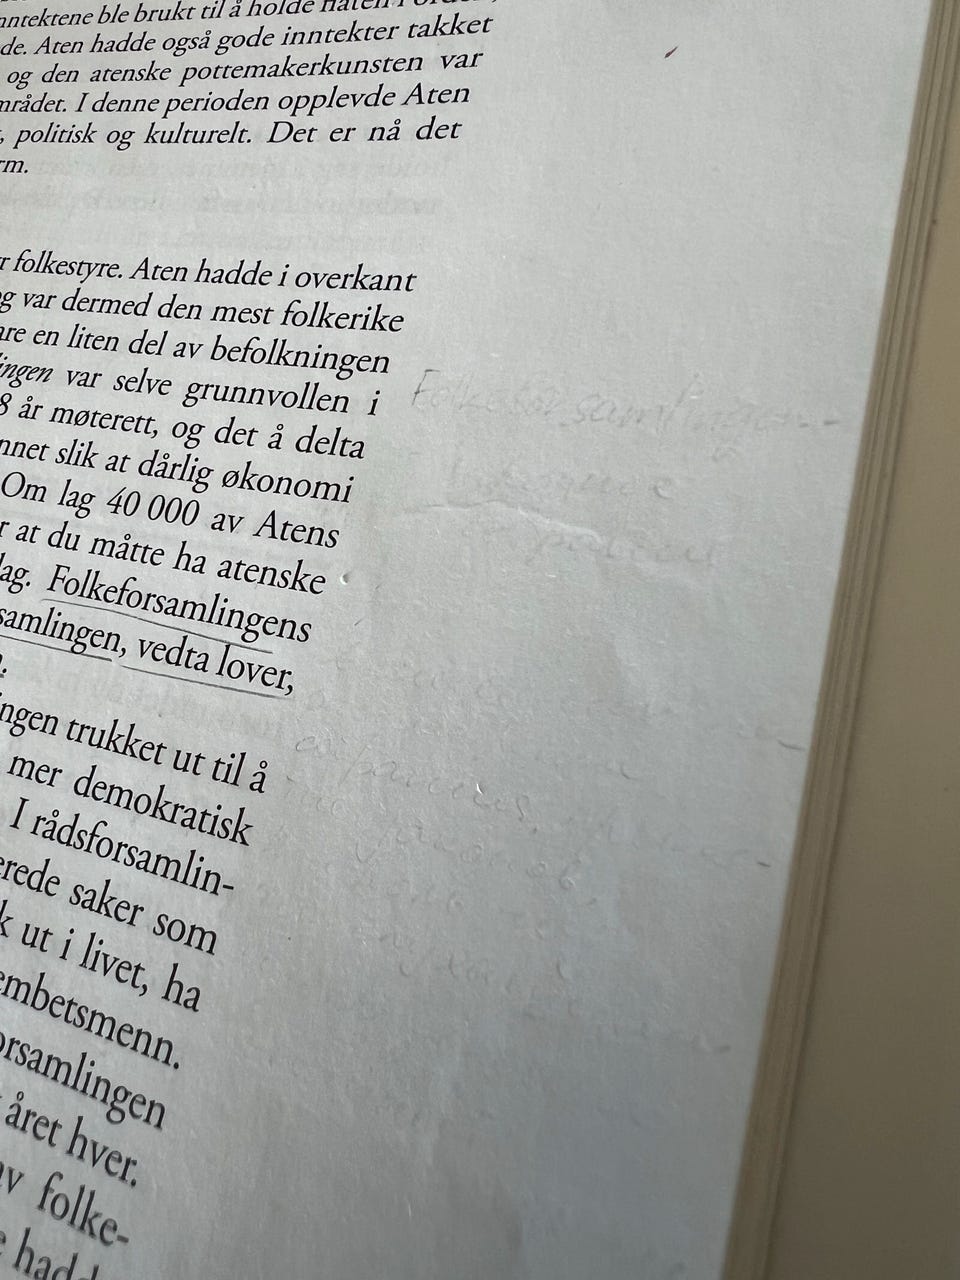 inntektene ble brukt til å holde flåten i orden,
de. Aten hadde også gode inntekter takket
og den atenske pottemakerkunsten var
mrådet. I denne perioden opplevde Aten
, politisk og kulturelt. Det er nå det
rm.
r folkestyre. Aten hadde i overkant
og var dermed den mest folkerike
are en liten del av befolkningen
ingen var selve grunnvollen i
8 år møterett, og det å delta
nnet slik at dårlig økonomi
Om lag 40 000 av Atens
r at du måtte ha atenske
lag. Folkeforsamlingens
samlingen, vedta lover,
n.
ingen trukket ut til å
mer demokratisk
I rådsforsamlin-
erede saker som
k ut i livet, ha
embetsmenn.
orsamlingen
året hver.
av folke-
e hadd
Folkeforsamlingen